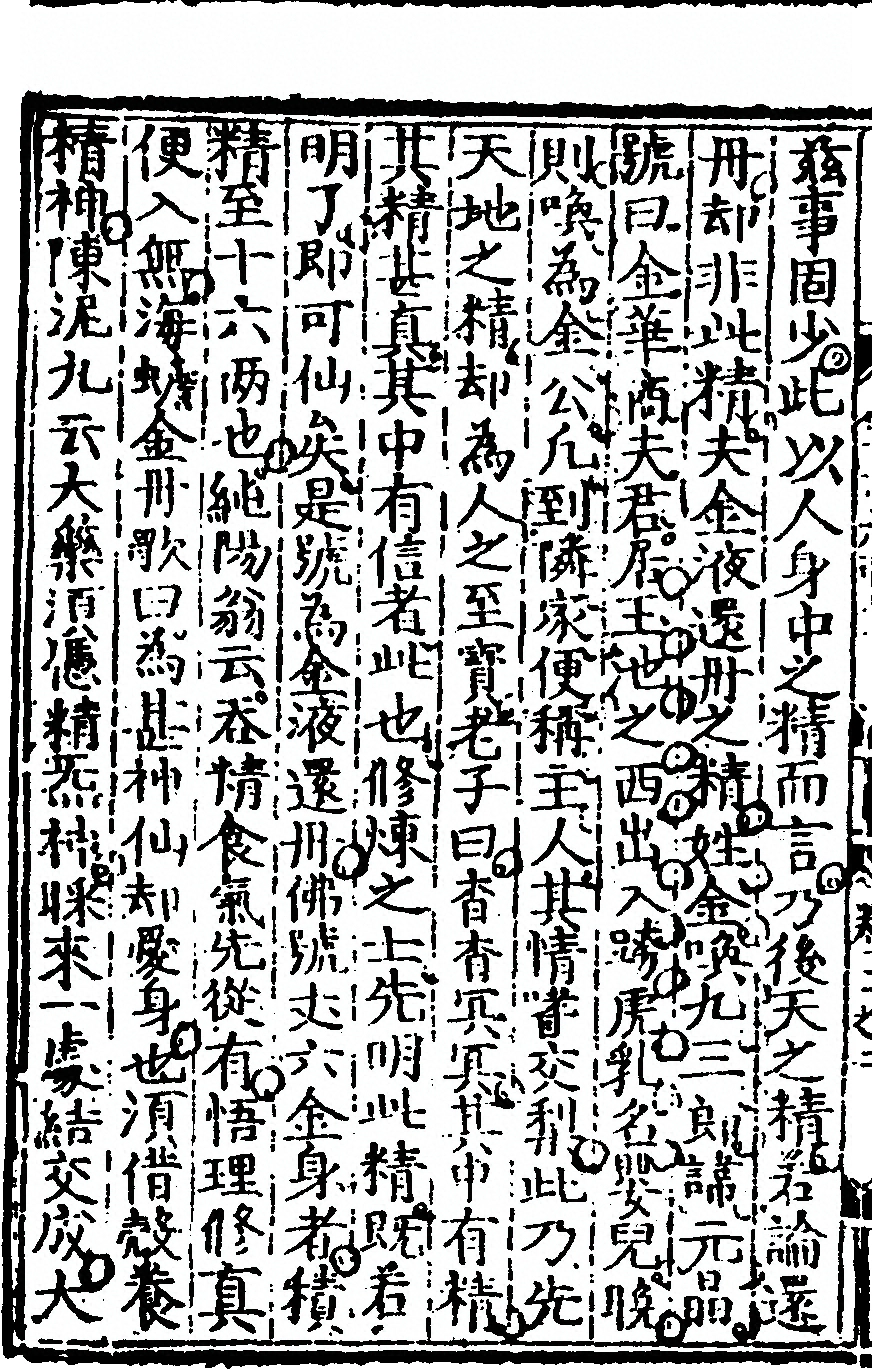 茲事固少此以人身中之精而言乃後天之精若論還
丹却非此精夫金液還丹之精姓金喚九三郎諱元晶
號曰金華商夫君居玉池之西出入跨虎乳名嬰兒晚
則喚為金公凡到隣家便稱主人其情著交梨此乃先
天地之精却為人之至寶老子曰杳杳冥冥其中有精
其精甚真其中有信者此也修煉之士先明此精既若
明了即可仙矣是號為金液還丹佛號丈六金身者積
精至十六两也純陽翁云吞精食氣先從有悟理修真
便入無海蟾金丹歌曰為甚神仙却愛身也須借殼養
精神陳泥丸云大藥須憑精炁神採來一處結交成大